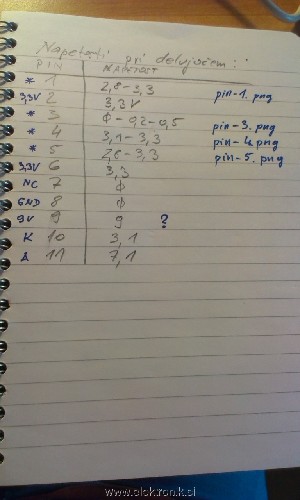 Napetosti pri delujočem:
PIN NAPETOST
* 1 2,8-3,3 pin-1.png
3,3V 2 3,3V
* 3 ϕ-0,2-0,5 pin-3.png
* 4 3,1-3,3 pin-4.png
* 5 2,8-3,3 pin-5.png
3,3V 6 3,3
NC 7 ϕ
GND 8 ϕ
9V 9 9 ?
K 10 3,1
A 11 7,1
www.elektronik.si